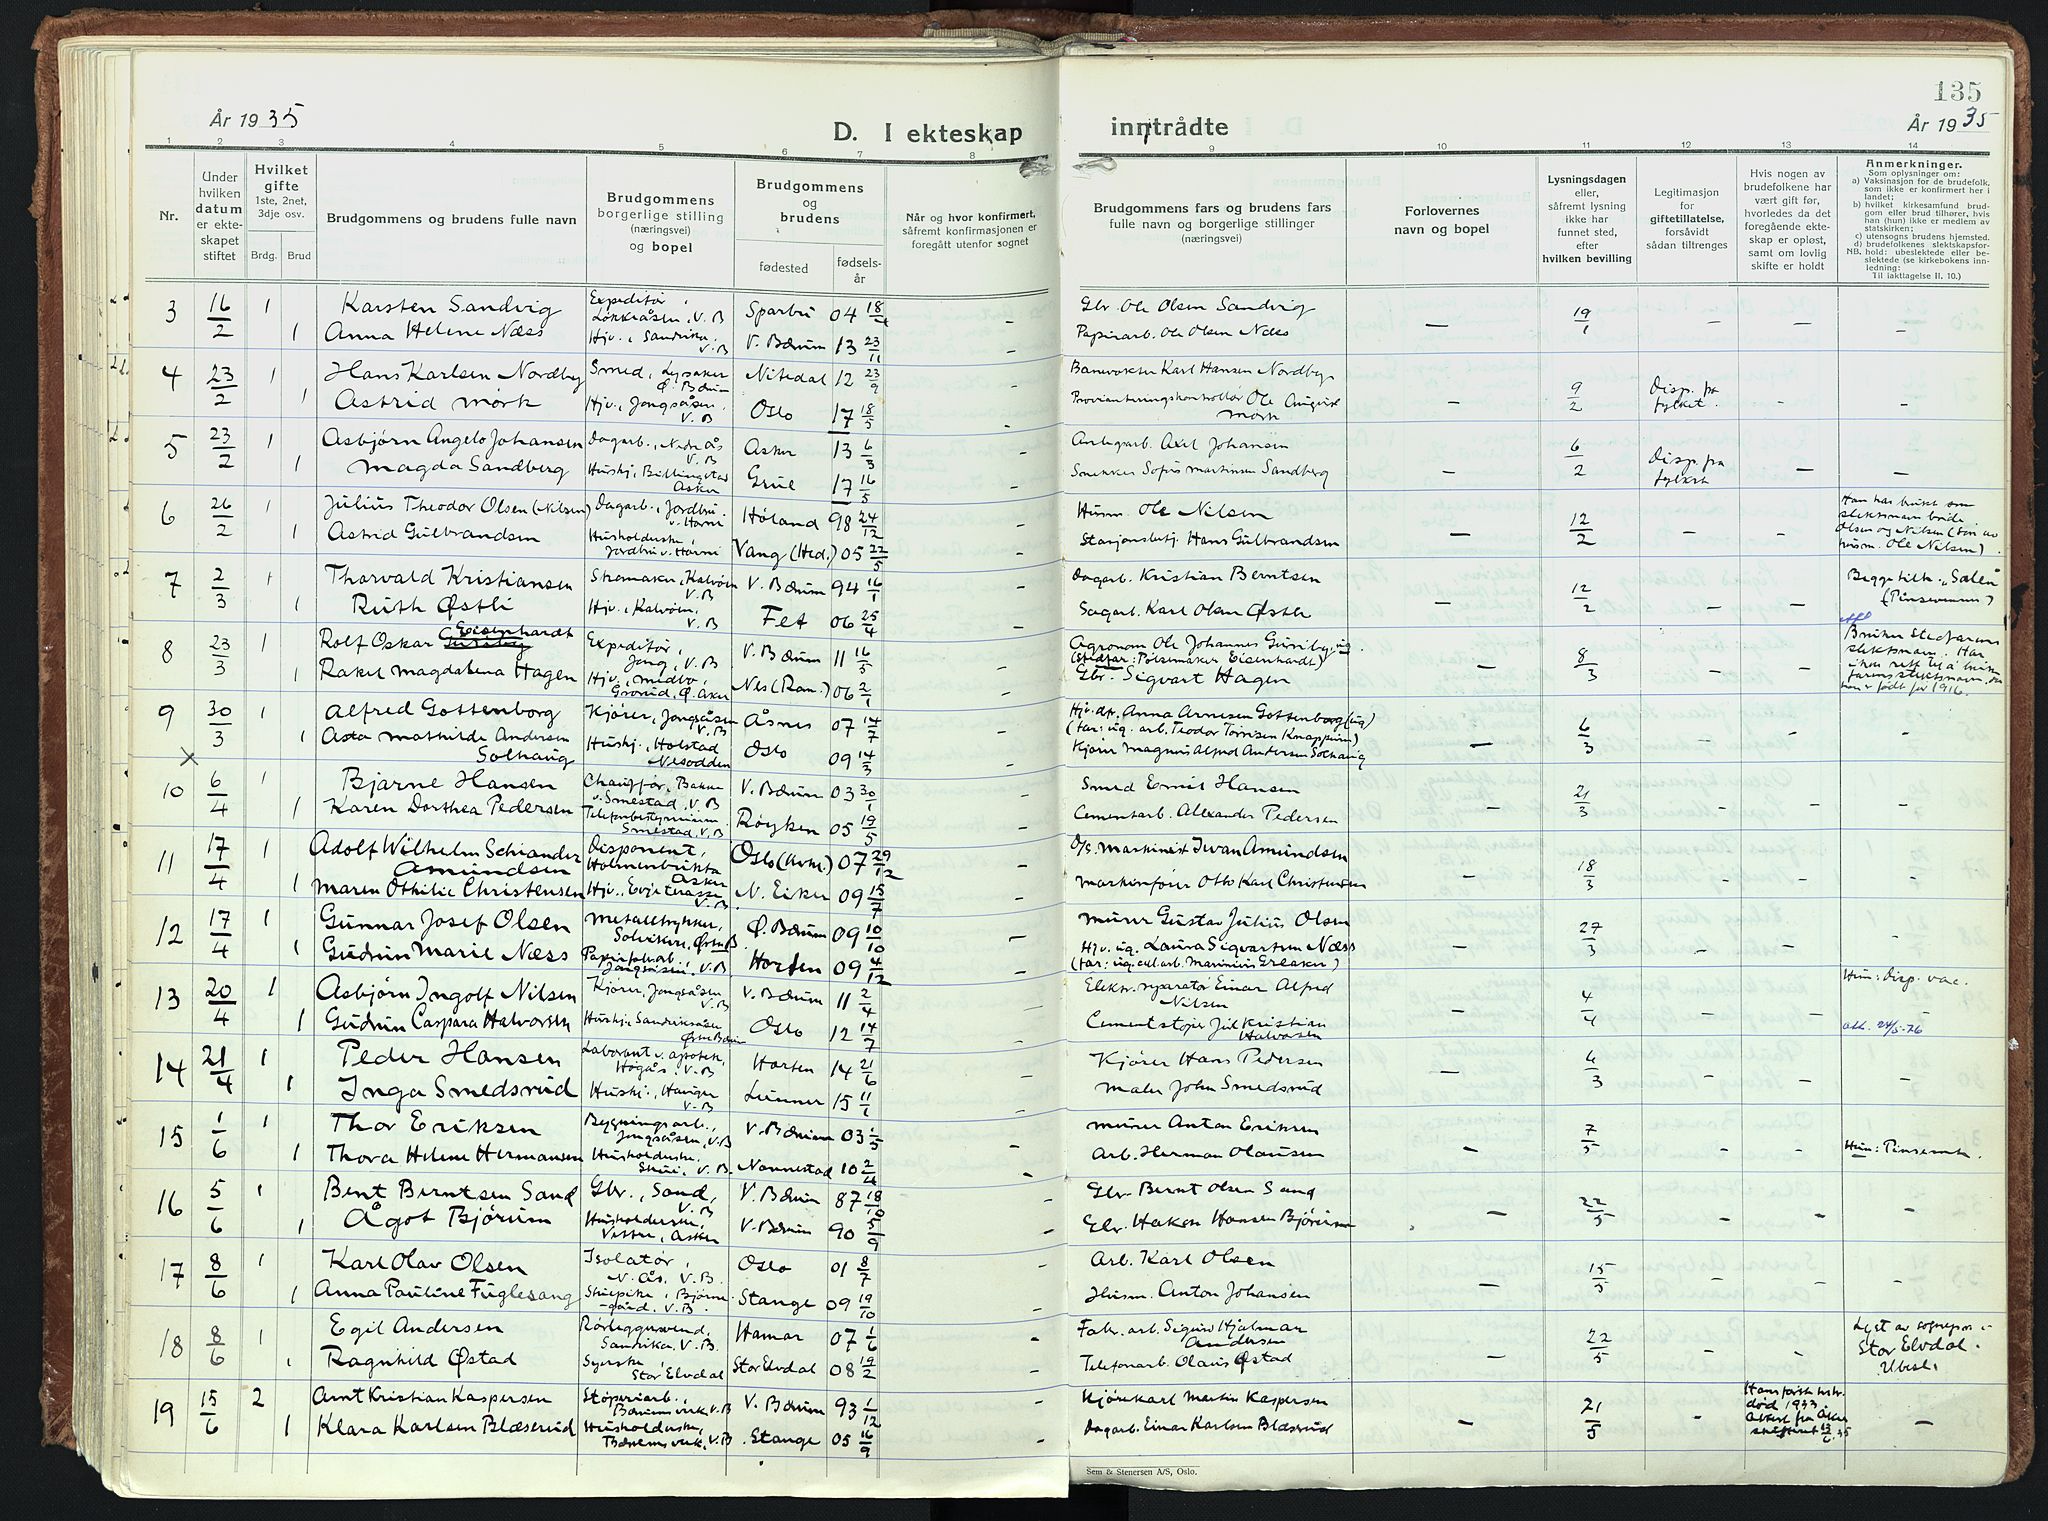 135
År 1935
D. I ekteskap inntrådte
År 1935
1 2 3 4 5 6 7 8 9 10 11 12 13 14
Nr.
Under hvilken datum er ekteskapet stiftet
Hvilket gifte 1ste, 2net, 3dje osv.
Brdg. Brud
Brudgommens og brudens fulle navn
Brudgommens borgerlige stilling (næringsvei) og bopel
Brudgommens og brudens
fødested fødselsår
Når og hvor konfirmert, såfremt konfirmasjonen er foregått utenfor sognet
Brudgommens fars og brudens fars fulle navn og borgerlige stillinger (næringsvei)
Forlovernes navn og bopel
Lysningsdagen eller, såfremt lysning ikke har funnet sted, efter hvilken bevilling
Legitimasjon for giftetillatelse, forsåvidt sådan tiltrenges
Hvis nogen av brudefolkene har vært gift før, hvorledes da det foregående ekteskap er opløst, samt om lovlig skifte er holdt
Anmerkninger.
Som oplysninger om:
a) Vaksinasjon for de brudefolk, som ikke er konfirmert her i landet;
b) hvilket kirkesamfund brudgom eller brud tilhører, hvis han (hun) ikke er medlem av statskirken;
c) utensogns brudens hjemsted.
d) brudefolkenes slektskapsforhold: ubeslektede eller beslektede (se kirkebokens innledning:
NB. Til iakttagelse II. 10.)
3 16/2 1 Karsten Sandvig Expeditør, V. B Sparbu 04 18/ Gbr. Ole Olsen Sandvig 19/1
1 Anna Helene Næss Hjv., Sandvika, V. B V. Bærum 13 23/11 Papirarb. Ole Olsen Næss
4 23/2 1 Hans Karlsen Nordby Smed, Lysaker Ø. Bærum Nitedal 12 23/9 Banevokter Karl Hansen Nordby 9/2 Disp. fra fylket.
1 Astrid Mørk Hjv., Jongsåsen, V. B Oslo 17 18/5 Proviantringskontrollør Ole Mørk
5 23/2 1 Asbjørn Angelo Johansen Dagarb., Nedre Ås V. B Asker 13 6/3 Anlegarb. Axel Johansen 6/2 Disp. fra fylket
1 Magda Sandberg Hushj., Billingstad Asker Grue 17 16/5 Snekker Sofus Martinsen Sandberg
6 26/2 1 Julius Theodor Olsen (Nilsen) Dagarb., Jordbru v. Horni Høland 98 24/12 Husm. Ole Nilsen 12/2 Han har brukt som slektsnavn både Olsen og Nilsen (sønn av husm. Ole Nilsen).
1 Astrid Gulbrandsen Husholderske, Jordbru v. Horni Vang (Hed.) 05 22/5 Stasjonsbetj. Hans Gulbrandsen
7 2/3 1 Thorvald Kristiansen Skomaker, Kalvøen V. B V. Bærum 94 16/1 Dagarb. Kristian Berntsen 12/2 Begge tilh. "Salen" (Pinsevenn)
1 Ruth Østli Hjv., Kalvøen, V. B Fet 06 25/4 Sagarb. Karl Olsen Østli
8 23/3 1 Rolf Oskar Eisenhardt Expeditør, Jong, V. B V. Bærum 11 16/5 Agronom Ole Johannes Gursby, ug. (Stedfar: Pølsemaker Eisenhardt) 8/3 Bruker stedfarens slektsnavn. Har ikke rett til å bruke farens slektsnavn, da han er født før 1916.
1 Rakel Magdalena Hagen Hjv., Grorud, Ø. Aker Nes (Rom.) 06 2/1 Gbr. Sigvart Hagen
9 30/3 1 Alfred Gottenborg Kjører, Jongsåsen V. B Åsnes 07 14/7 Hjv. dtr. Anna Arnesen Gottenborg (ug) (far: ug. arb. Teodor Tørrisen Knappum) 6/3
1 Asta Mathilde Andersen Solhaug Hushj., Holstad Nesodden Oslo 09 14/3 Kjører Magnus Alfred Andersen Solhaug
10 6/4 1 Bjarne Hansen Chauffør, Bakke v. Smestad, V. B V. Bærum 03 30/1 Smed Emil Hansen 21/3
1 Karen Dorthea Pedersen Telefonbestyrerinne Smestad, V. B Røyken 05 19/5 Cementarb. Alexander Pedersen
11 17/4 1 Adolf Wilhelm Schiander Amundsen Disponent, Asker Oslo 07 29/12 Maskinist Iwan Amundsen 18/3
1 Maren Othilie Christensen Hjv., Evje terasse V. B N. Eiker 09 15/7 Maskinfører Otto Karl Christensen
12 17/4 1 Gunnar Josef Olsen Metalltrykker, Østre B Ø. Bærum 09 10/10 Murer Gustav Julius Olsen 27/3
1 Gudrun Marie Næss Papirfabarb., V. B Horten 09 4/12 Hjv. ug. Laura Sigvartsen Næss (far: ug. cell. arb. Marinius Greaker)
13 20/4 1 Asbjørn Ingolf Nilsen Kjører, Jongsåsen V. B V. Bærum 11 2/4 Elektr. reparatør Einar Alfred Nilsen 4/4 Hun: Disp. vac.
1 Gudrun Caspara Halvorsen Hushj. Østre Bærum Oslo 12 14/7 Cementstøper Jul Kristian Halvorsen att. 24/5-76
14 21/4 1 Peder Hansen Laborant v. apotek, Høgås, V. B Horten 14 21/6 Kjører Hans Pedersen 4/3
1 Inga Smedsrud Hushj., Hauger V. B Lunner 15 11/1 Maler John Smedsrud
15 1/6 1 Thor Eriksen Bygningsarb., Jongsåsen, V. B V. Bærum 03 1/5 Murer Anton Eriksen 7/5
1 Thora Helene Hermansen Husholderske, Skui, V. B. Nannestad 10 2/4 Arb. Herman Olausen Hun: Pinsemh.
16 5/6 1 Bent Berntsen Sand Gbr., Sand, V. B V. Bærum 87 18/10 Gbr. Bernt Olsen Sand 22/5
1 Ågot Bjørum Husholderske, Vestre, Asker V. Bærum 90 5/9 Gbr. Haken Hansen Bjørum
17 8/6 1 Karl Olav Olsen Isolatør, N. Ås, V. B. Oslo 01 8/7 Arb. Karl Olsen 15/5
1 Anna Pauline Fuglesang Stuepike, Bjørnegård, V. B. Stange 09 19/10 Husm. Anton Johansen
18 8/6 1 Egil Andersen Rørleggersvend, Sandvika, V. B. Hamar 07 1/6 Fabr. arb. Sigurd Hjalmar Andersen 22/5 Lyst av sognepr. i Stor Elvdal. Ubesl.
1 Ragnhild Østad Syerske, Stor Elvdal Stor Elvdal 08 19/2 Telefonarb. Olaus Østad
19 15/6 2 Arnt Kristian Kaspersen Støperiarb., Bærums verk V. B V. Bærum 93 1/12 Kjørekarl Martin Kaspersen 21/5 Hans første hustr. død 1933 Attest fra Aker skifterett 13/6 35
1 Klara Karlsen Blæserud Husholderske, Bærums verk, V. B Stange 05 16/9 Dagarb. Einar Karlsen Blæserud
Sem & Stenersen A/S, Oslo.